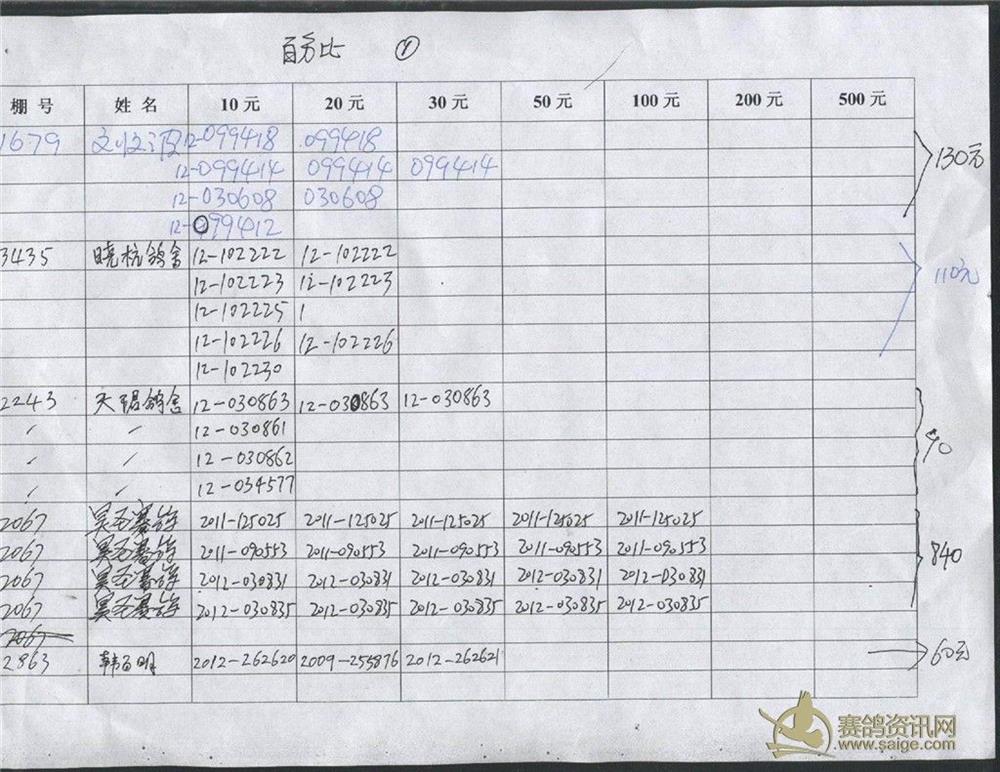 百分比 ①
棚号 姓名 10元 20元 30元 50元 100元 200元 500元
1679 12-099418 099418
12-099414 099414 099414 130元
12-030608 030608
12-099412
3435 晓杭鸽舍 12-102222 12-102222
12-102223 12-102223 110元
12-102225 1
12-102226 12-102226
12-102230
2243 天 鸽舍 12-030863 12-030863 12-030863
〃 〃 12-030861 90
〃 〃 12-030862
〃 〃 12-034577
2067 2011-125025 2011-125025 2011-125025 2011-125025 2011-125025
2067 2011-090553 2011-090553 2011-090553 2011-090553 2011-090553 840
2067 2012-030831 2012-030831 2012-030831 2012-030831 2012-030831
2067 2012-030835 2012-030835 2012-030835 2012-030835 2012-030835
2067
2863 韩 明 2012-262620 2009-255876 2012-262621 60元
赛鸽资讯网
www.saige.com